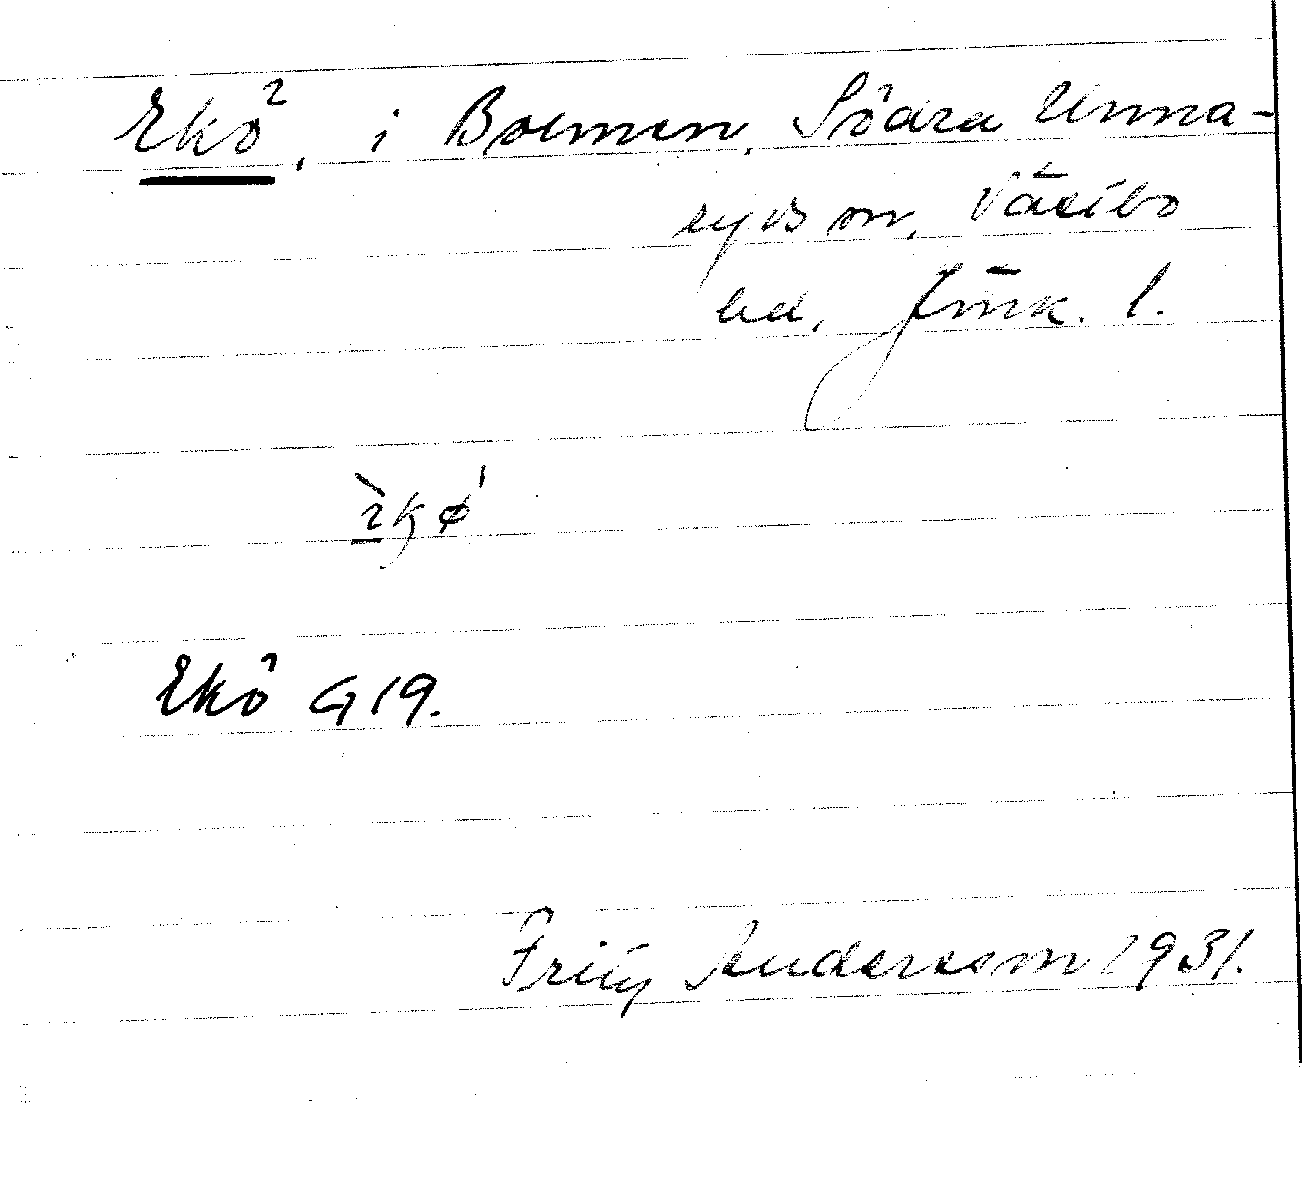 Ekö, i Bolmen, Södra Unna-
ryds sn, Västbo
hd, Jönk. l.
Ekö G 19.
Andersson 1931.